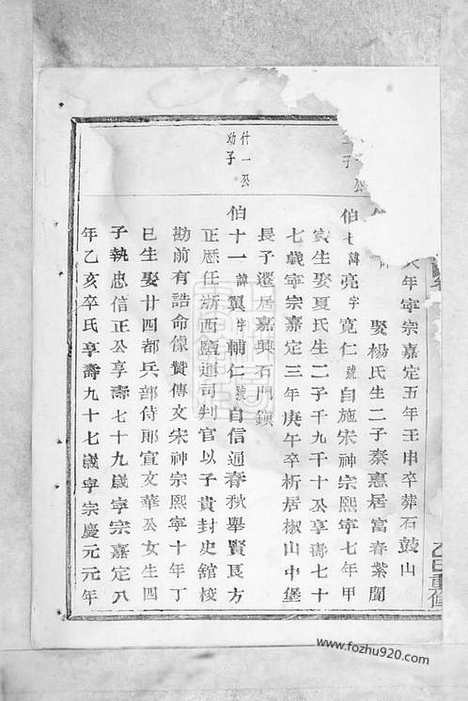 乙巳重修
年寧宗嘉定五年壬申卒葬石鼓山
娶楊氏生二子秦惠居富春紫閬
伯七諱亮字寬仁號自施宋神宗熙寧七年甲
寅生娶夏氏生二子千九千十公享壽七十
七歲寧宗嘉定三年庚午卒析居椒山中堡
長子遷居嘉興石門鎮
什一公
幼子
伯十一諱翼字輔仁號自信通春秋舉賢良方
正歷任浙西鹽運司判官以子貴封史舘校
勘前有誥命像贊傳文宋神宗熙寧十年丁
巳生娶廿四都兵部侍郎宣文華公女生四
子執忠信正公享壽七十九歲寧宗嘉定八
年乙亥卒氏享壽九十七歲寧宗慶元元年
www.fozhu920.com